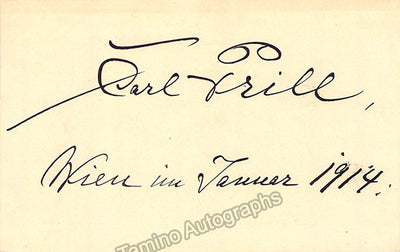 Carl Prill,
Wien im Januar 1914.
Tamino Autographs